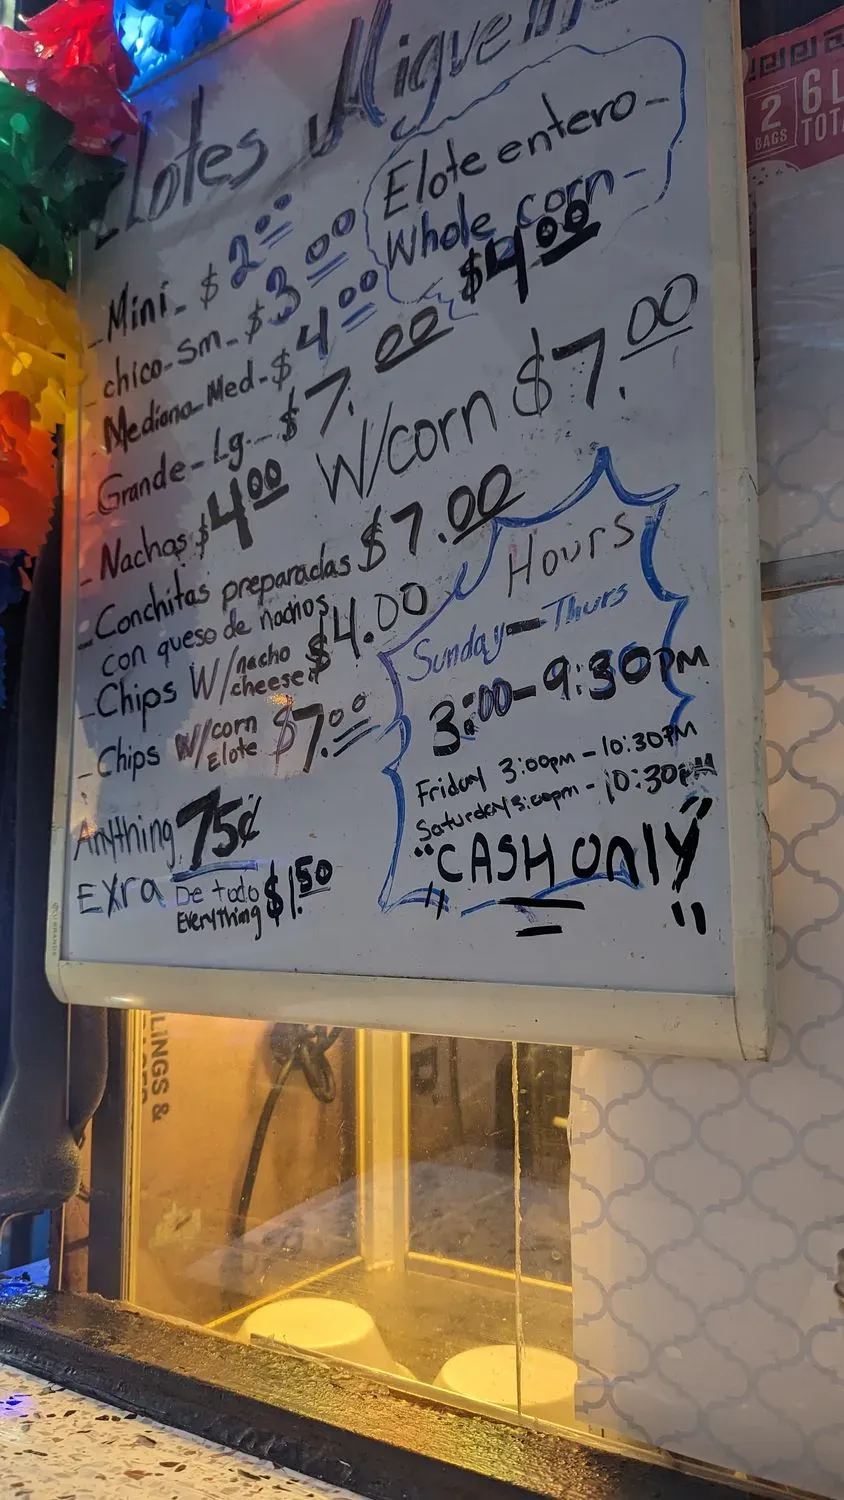 Elotes Miguelin
Elote entero-
Whole corn-
$4.00
- Mini- $2.00
- chico-sm- $3.00
- Mediano-Med- $4.00
- Grande-Lg- $7.00
- Nachos $4.00 W/corn $7.00
- Conchitas preparadas $7.00
con queso de nachos
- Chips W/nacho cheese $4.00
- Chips W/corn Elote $7.00
Anything 75¢
EXra De todo
Everything $1.50
Hours
Sunday-Thurs
3:00-9:30PM
Friday 3:00pm-10:30PM
Saturday 3:00pm-10:30PM
"CASH ONLY"
2
BAGS
6 L
TOT
LINGS &